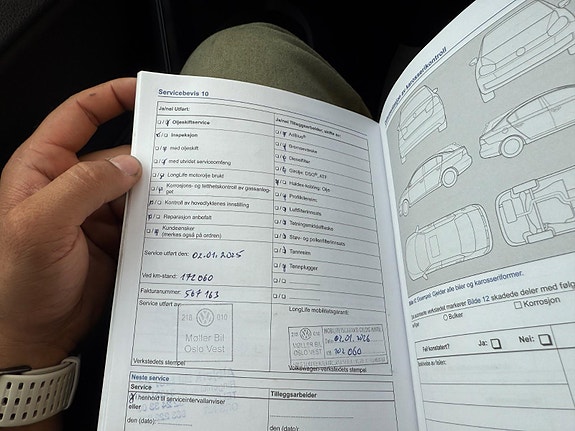 Servicebevis 10
Ja/nei Utført:
Oljeskiftservice
Inspeksjon
med oljeskift
med utvidet serviceomfang
LongLife motorolje brukt
Korrosjons- og tetthetskontroll av gassanleg-
get
Kontroll av hovedlyktenes innstilling
Reparasjon anbefalt
Kundeønsker
(merkes også på ordren)
Service utført den: 02.01.2025
Ved km-stand: 172060
Fakturanummer: 567163
Service utført av:
218 010
Møller Bil
Oslo Vest
Verkstedets stempel
Ja/nei Tilleggsarbeider, skifte av:
AdBlue®
Bremsevæske
Dieselfilter
Girolje: DSG®, ATF
Haldex-kobling: Olje
Luftfilterinnsats
Tetningsmiddelflaske
Støv- og pollenfilterinnsats
Tannreim
Tennplugger
LongLife mobilitetsgaranti:
MOBILITETSGARANTI
MØLLER BIL
OSLO VEST
Volkswagen-verkstedets stempel
Neste service
Service
I henhold til serviceintervallanviser
eller
den (dato):
Tilleggsarbeider
den (dato):
karosserikontroll
Gjelder alle biler og karosseriformer.
verkstedet markerer Bilde 12 skadede deler med følg
Bulker
Korrosjon
Feil konstatert?
Ja:
Nei: